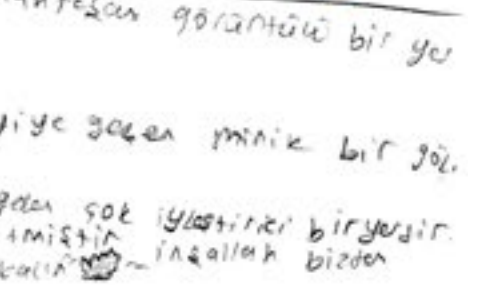 görüntülü bir yer
geçen minik bir göl.
çok iyleştirici biryerdir.
inşallah bizden